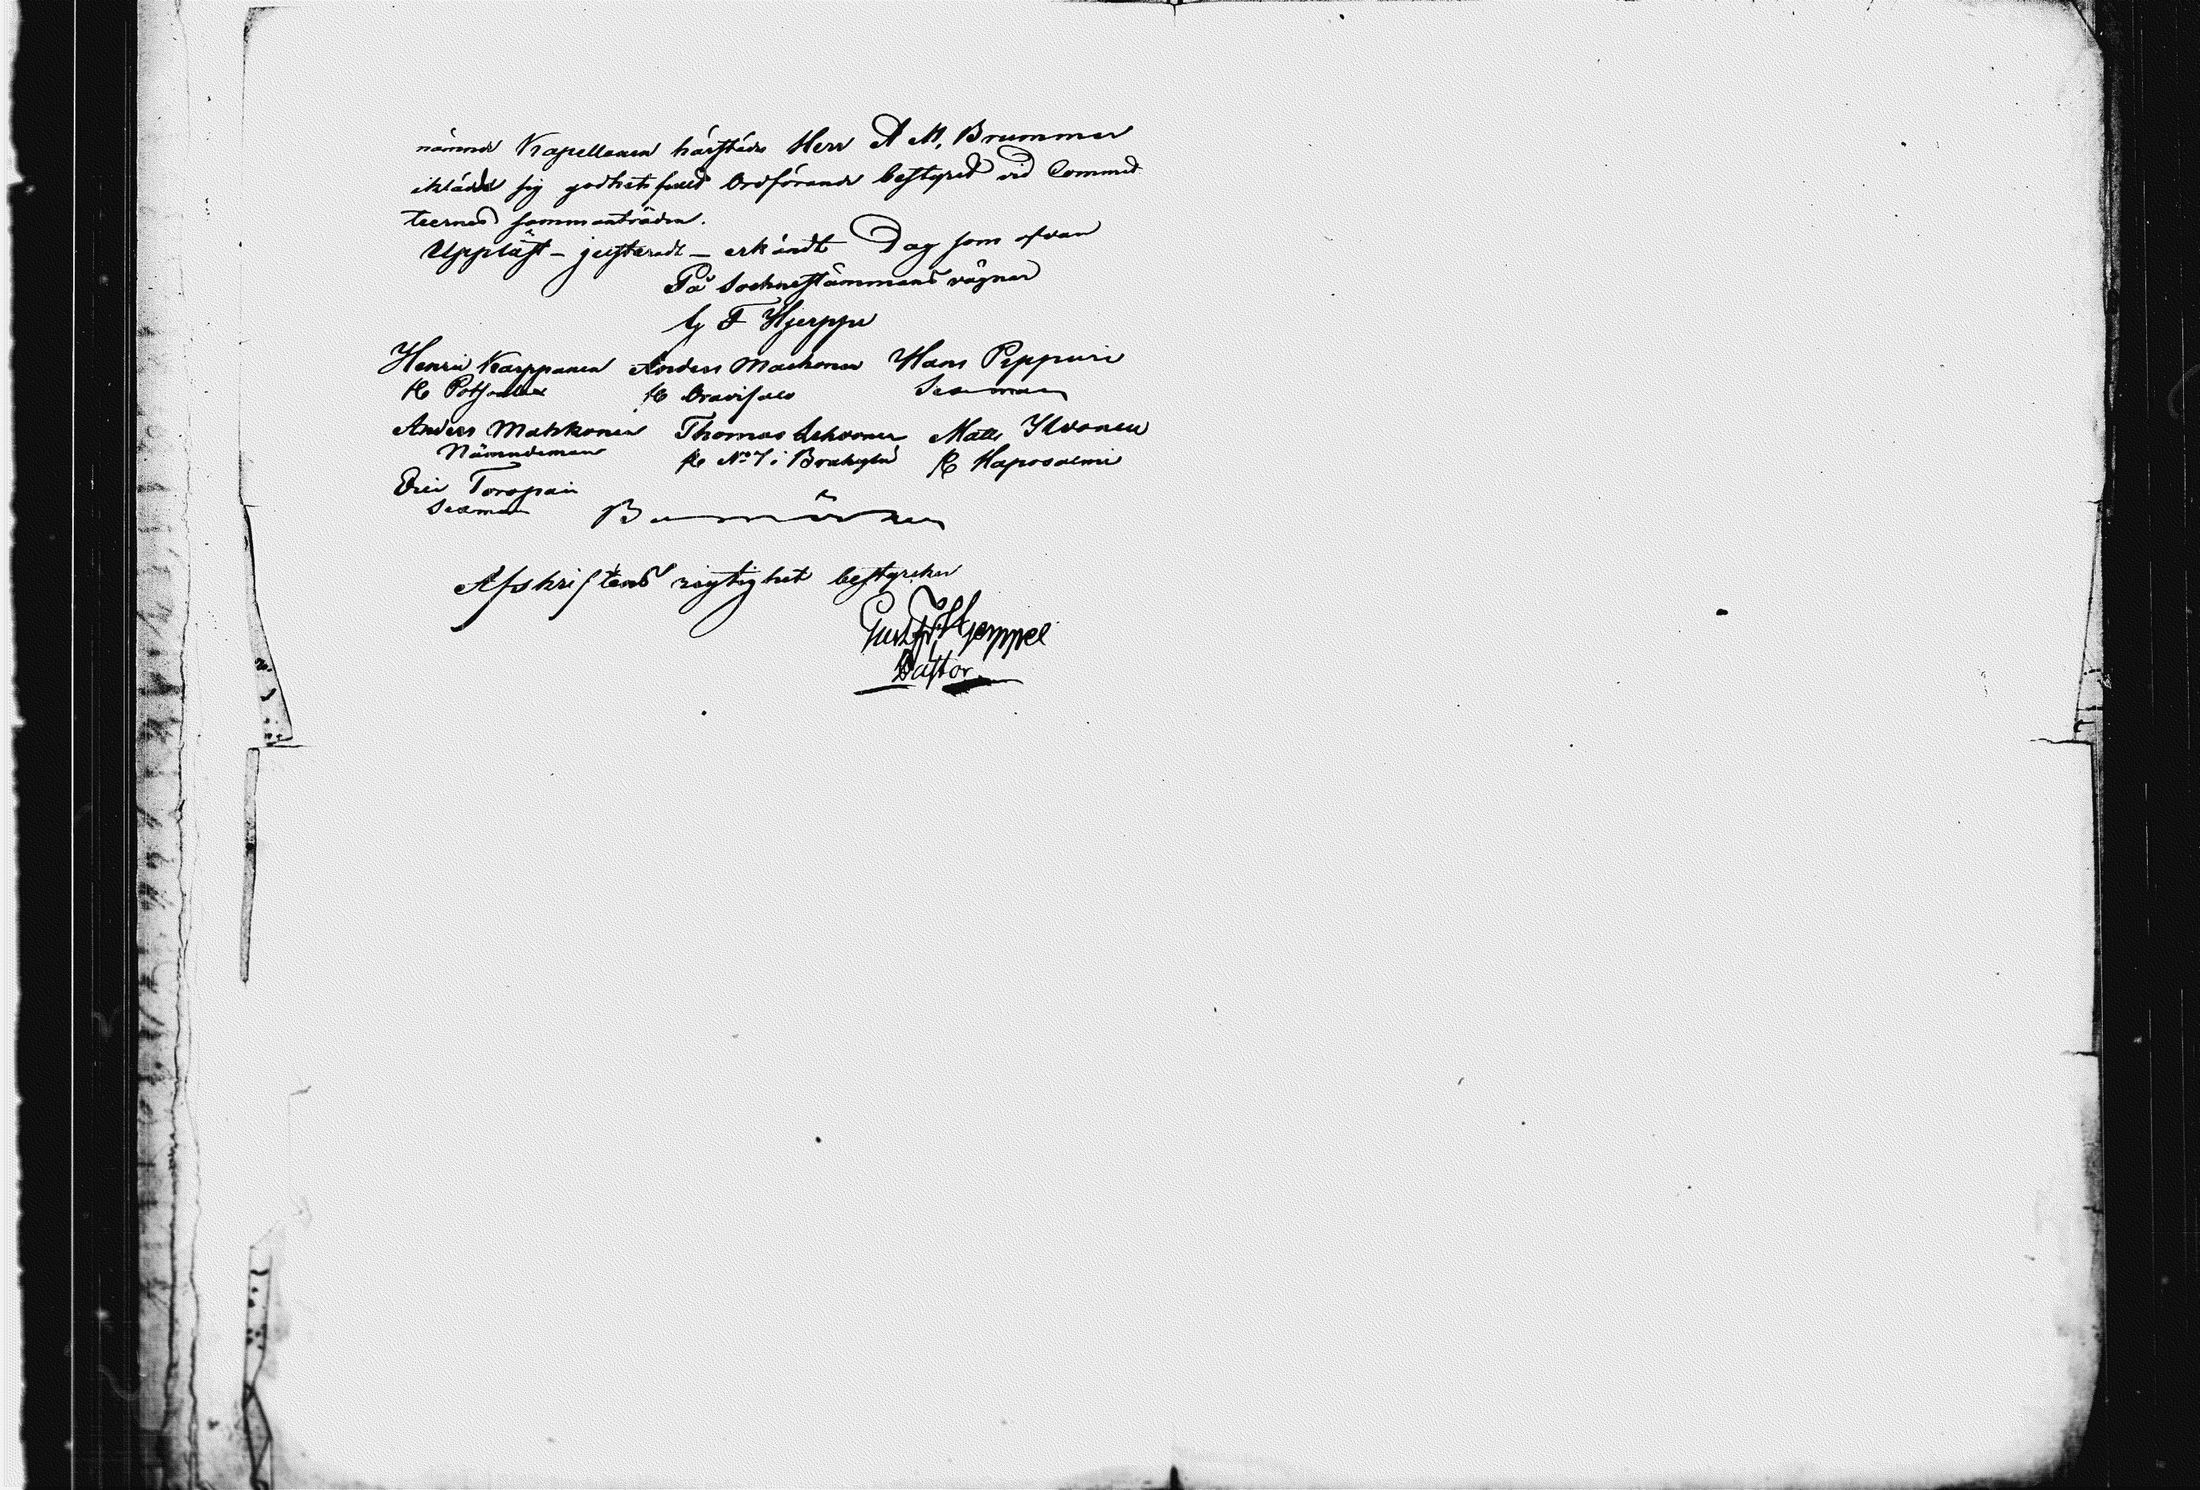 nämnde Kapellanen härstädes Herr A M. Brummer
ikläde sig godhetsfullt Ordförande bestyret vid Commit-
teernes sammanträden.
Uppläst – justeradt – erkändt Dag som ofvan
På Sockenstämmans vägnar
G F Hjerppe
Henric Karppanen Anders Mackonen Hans Peppuri
fr. Oravisalo Sexman
Anders Mahkonen Thomas Lehvonen Matts Ikonen
Nämndeman fr. No 7 i Braheylä fr. Haposalmi
Eric Toropain
Sexman Bomärken
Afskriftens rigtighet bestyrker
Gust. Fr. Hjerppe
Pastor